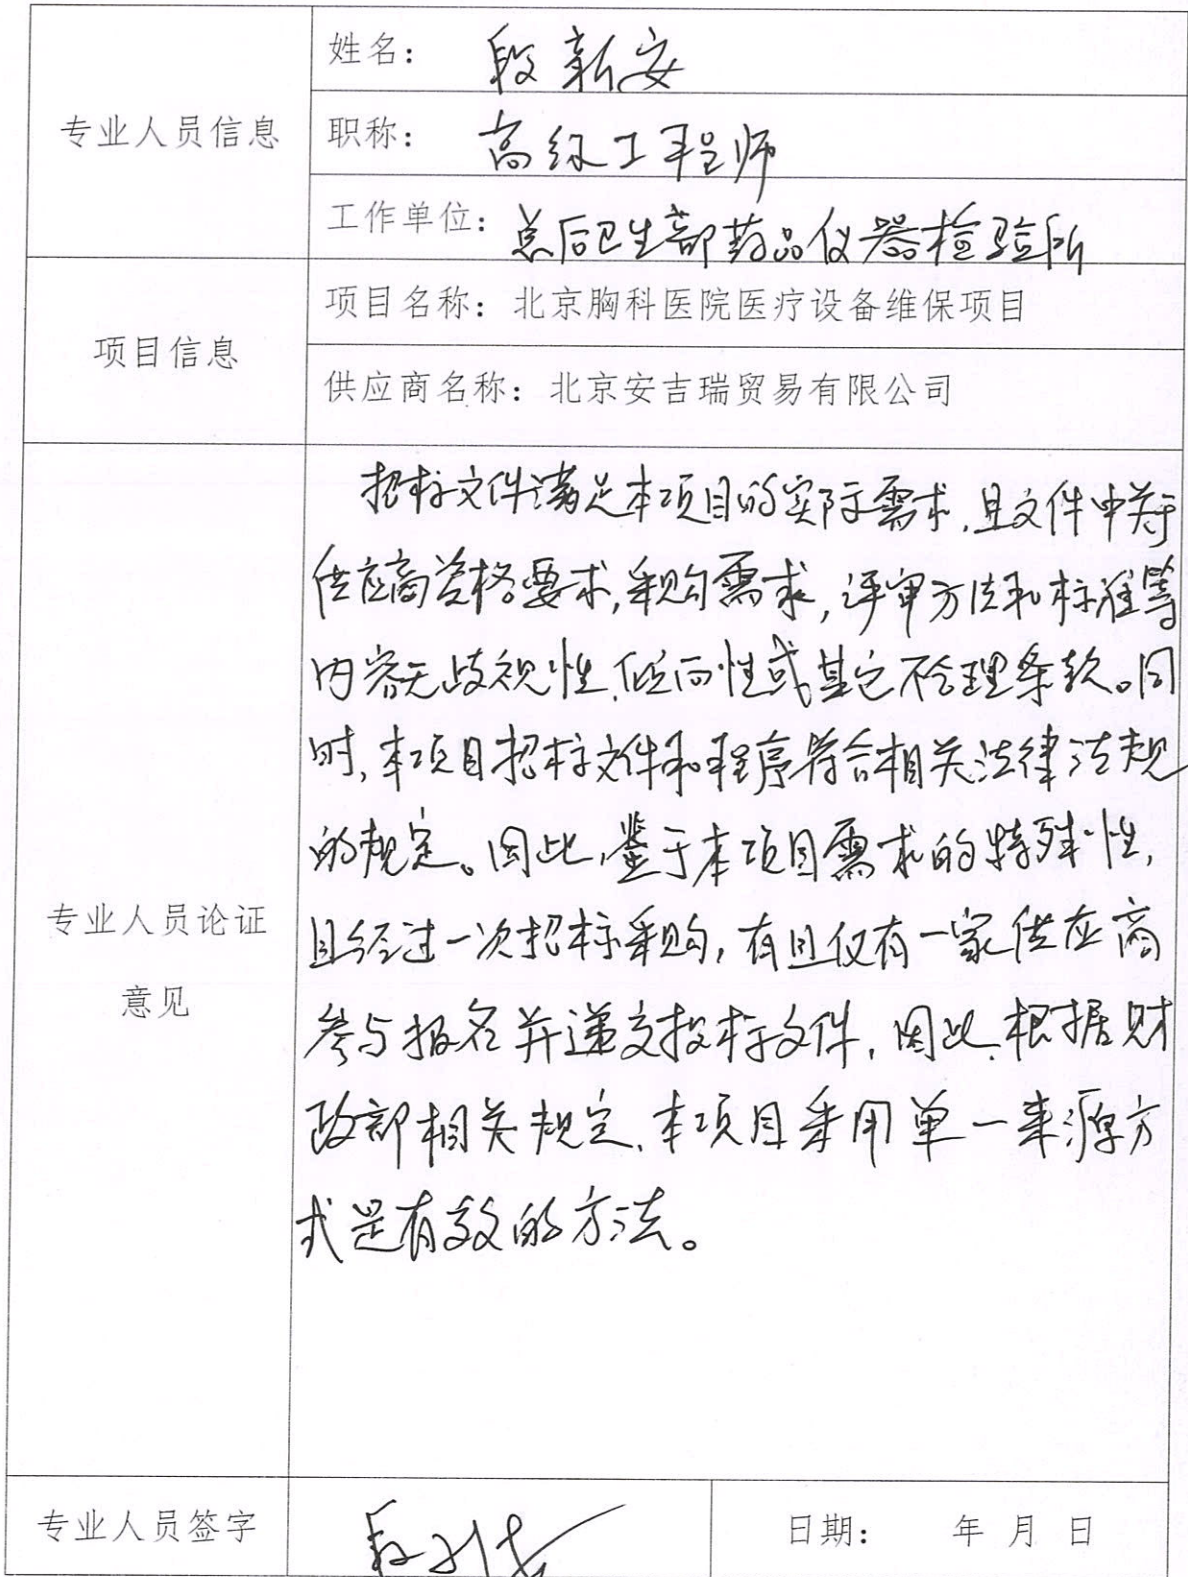 专业人员信息
姓名：段新安
职称：高级工程师
工作单位：总后卫生部药品仪器检验所
项目信息
项目名称：北京胸科医院医疗设备维保项目
供应商名称：北京安吉瑞贸易有限公司
专业人员论证
意见
招标文件满足本项目的实际需求，且文件中关于
供应商资格要求，采购需求，评审方法和标准等
内容无歧视性、倾向性或其它不合理条款。同
时，本项目招标文件和程序符合相关法律法规
的规定。因此，鉴于本项目需求的特殊性，
且经过一次招标采购，有且仅有一家供应商
参与报名并递交投标文件，因此，根据财
政部相关规定，本项目采用单一来源方
式是有效的方法。
专业人员签字
段新安
日期： 年 月 日